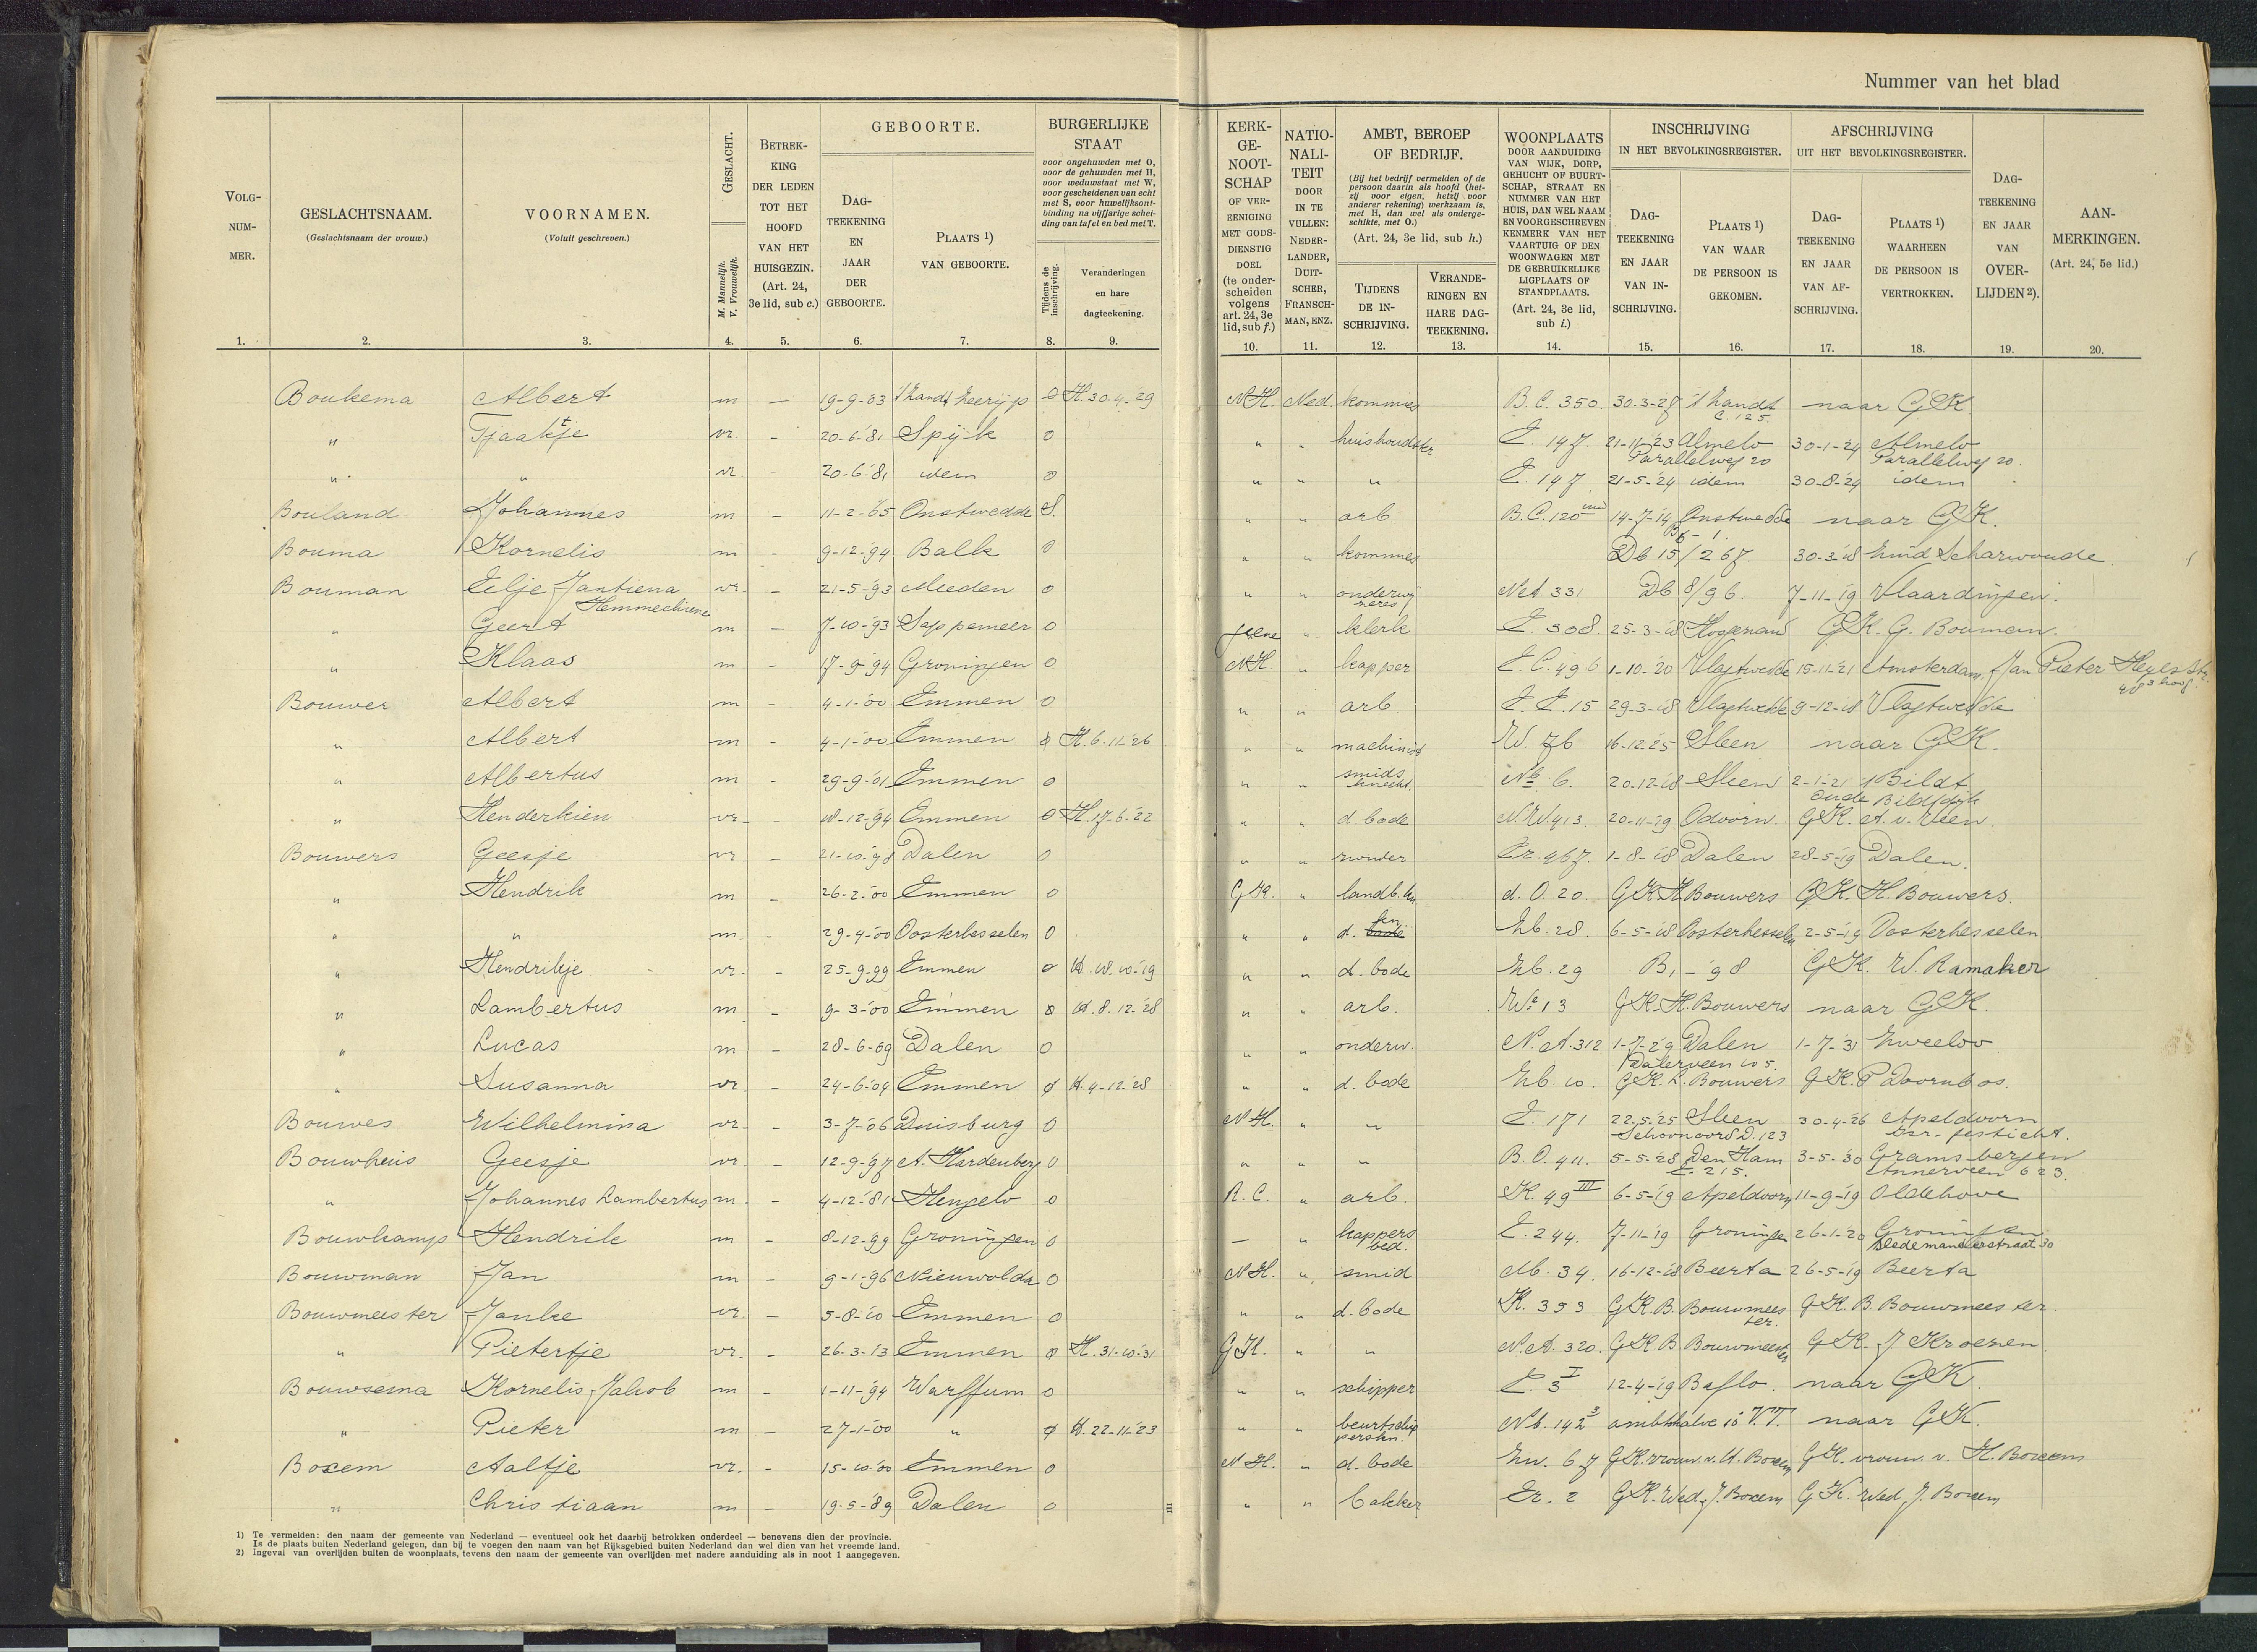 Nummer van het blad
VOLG-NUM-MER. GESLACHTSNAAM. (Geslachtsnaam der vrouw.) VOORNAMEN. (Voluit geschreven.) GESLACHT. M. Mannelijk. V. Vrouwelijk. BETREK-KING DER LEDEN TOT HET HOOFD VAN HET HUISGEZIN. (Art. 24, 3e lid, sub c.) GEBOORTE. DAG-TEEKENING EN JAAR DER GEBOORTE. PLAATS 1) VAN GEBOORTE. BURGERLIJKE STAAT voor ongehuwden met O, voor de gehuwden met H, voor weduwstaat met W, voor gescheidenen van echt met S, voor huwelijksont-binding na vijfjarige schei-ding van tafel en bed met T. Tijdens de inschrijving. Veranderingen en hare dagteekening.
KERK-GE-NOOT-SCHAP OF VER-EENIGING MET GODS-DIENSTIG DOEL (te onder-scheiden volgens art. 24, 3e lid, sub f.) NATIO-NALI-TEIT DOOR IN TE VULLEN: NEDER-LANDER, DUIT-SCHER, FRANSCH-MAN, ENZ. AMBT, BEROEP OF BEDRIJF. (Bij het bedrijf vermelden of de persoon daarin als hoofd (het-zij voor eigen, hetzij voor anderer rekening) werkzaam is, met H, dan wel als onderge-schikte, met O.) (Art. 24, 3e lid, sub h.) TIJDENS DE IN-SCHRIJVING. VERANDE-RINGEN EN HARE DAG-TEEKENING. WOONPLAATS DOOR AANDUIDING VAN WIJK, DORP, GEHUCHT OF BUURT-SCHAP, STRAAT EN NUMMER VAN HET HUIS, DAN WEL NAAM EN VOORGESCHREVEN KENMERK VAN HET VAARTUIG OF DEN WOONWAGEN MET DE GEBRUIKELIJKE LIGPLAATS OF STANDPLAATS. (Art. 24, 3e lid, sub i.) INSCHRIJVING IN HET BEVOLKINGSREGISTER. DAG-TEEKENING EN JAAR VAN IN-SCHRIJVING. PLAATS 1) VAN WAAR DE PERSOON IS GEKOMEN. AFSCHRIJVING UIT HET BEVOLKINGSREGISTER. DAG-TEEKENING EN JAAR VAN AF-SCHRIJVING. PLAATS 1) WAARHEEN DE PERSOON IS VERTROKKEN. DAG-TEEKENING EN JAAR VAN OVER-LIJDEN 2). AAN-MERKINGEN. (Art. 24, 5e lid.)
1. 2. 3. 4. 5. 6. 7. 8. 9. 10. 11. 12. 13. 14. 15. 16. 17. 18. 19. 20.
Boukema Albert m - 19-9-'03 't Zandt O H. 30.4.'29 N.H. Ned. kommies B.C. 350 30.3-27 't Zandt C. 125 naar GK
" Tjaaktje vr. - 20-6-'81 Spijk O " " huishoudster E. 147 21-11-'23 Almelo Parallelweg 20 30-1-'24 Almelo Parallelweg 20.
" " vr. 20-6-'81 idem O " " " E. 147 21-5-'24 idem 30-8-'24 idem
Bouland Johannes m - 11-2-'65 Onstwedde S. " " arb B.C. 120 14-7-'14 Onstwedde naar GK.
Bouma Kornelis m - 9-12-'94 Balk O " " kommies Db 15/267 30-3-'18 Zuid Scharwoude
Bouman Eelje Jantiena Hemmechiene vr. - 21-5-'93 Meeden O " " onderwijzeres N.A. 331 Db 8/96 7-11-'19 Vlaardingen.
" Geert m - 7-10-'93 Sappemeer O geene " klerk E. 308. 25-3-'18 Hoogezand GK. G. Bouman.
" Klaas m - 17-9-'94 Groningen O N.H. " kapper E.C. 496 1-10-'20 Vlagtwedde 15-11-'21 Amsterdam, Jan Pieter Heyestr. 48 3 hoog
Bouwer Albert m - 4-1-'00 Emmen O " " arb. E.E. 15 29-3-'18 Vlagtwedde 9-12-'18 Vlagtwedde
" Albert m - 4-1-'00 Emmen O H. 6.11-'26 " " machinist W. 76 16-12-'25 Sleen naar GK.
" Albertus m - 29-9-'01 Emmen O " " smidsknecht Nb 6. 20-12-'18 Sleen 2-1-'21 't Bildt Oude Bildtdijk
" Henderkien vr. - 18-12-'94 Emmen O H. 17-6-'22 " " d. bode N.W. 413 20-11-'19 Odoorn. GK. A. v. Veen.
Bouwers Geesje vr. - 21-10-'98 Dalen O " " zonder Er. 467. 1-8-'18 Dalen 28-5-'19 Dalen.
" Hendrik m - 26-2-'00 Emmen O G.K. " landb. kn d. O. 20 GK H Bouwers GK. H. Bouwers.
" " m. 29-4-'00 Oosterhesselen O " " d. bode kn Zb. 28 6-5-'18 Oosterhesselen 2-5-'19 Oosterhesselen
" Hendrikje vr. - 25-9-99 Emmen O H. 18.10-'19 " " d. bode Zb. 29 B1 - 98 GK. W. Ramaker
" Lambertus m - 9-3-'00 Emmen O H. 8.12.'28 " " arb. We 13 GK. H. Bouwers naar GK
" Lucas m - 28-6-'09 Dalen O " " onderw. N.A. 312 1-7-'29 Dalen Dalerveen 105. 1-7-'31 Zweeloo
" Susanna vr. - 24-6-'04 Emmen O H. 4-12.'28 " " d. bode Zb. 10. GK. L. Bouwers GK. P Doornbos.
Bouwes Wilhelmina vr. - 3-7-'06 Duisburg O N.H. " " E. 171 22.5.'25 Sleen Schoonoord D. 123 30-4-'26 Apeldoorn
Bouwhuis Geesje vr. - 12-9-'97 A. Hardenberg O " " " B.O. 411. 5-5-'28 Den Ham E. 215. 3-5-'30 Gramsbergen Annerveen 623.
" Johannes Lambertus m - 4-12-'81 Hengelo O R.C. " arb. K. 49 III 6-5-'19 Apeldoorn 11-9-'19 Oldehove
Bouwkamp Hendrik m - 8-12-'99 Groningen O — " kappers bed. E. 244. 7-11-'19 Groningen 26-1-'20 Groningen
Bouwman Jan m - 9-1-'96 Nieuwolda O N.H. " smid Mb. 34, 16-12-'18 Beerta 26-5-'19 Beerta
Bouwmeester Janke vr. - 5-8-'10 Emmen O " " d. bode K. 353 GK. B. Bouwmeester. GK. B. Bouwmeester.
" Pietertje vr. - 26-3-'13 Emmen O H. 31-10-'31 G.K. " " N.A. 320. GK. B Bouwmeester GK. J Kroezen
Bouwsema Kornelis Jakob m - 1-11-'94 Warffum O " " schipper E. 3 I 12-4-'19 Baflo. naar GK.
" Pieter m - 27-1-'00 " O H. 22-11-'23 " " beurtschip Nb. 142 3 ambtshalve V.T. naar GK.
Boxem Aaltje vr. - 15-10-'00 Emmen O N.H. " d. bode Zw. 67 GK. vrouw v. H. Boxem GK. vrouw v. H. Boxem
" Christiaan m - 19-5-'89 Dalen O " " bakker Er. 2 GK. Wed. J. Boxem GK. Wed. J. Boxem
1) Te vermelden: den naam der gemeente van Nederland — eventueel ook het daarbij betrokken onderdeel — benevens dien der provincie.
Is de plaats buiten Nederland gelegen, dan bij te voegen den naam van het Rijksgebied buiten Nederland dan wel dien van het vreemde land.
2) Ingeval van overlijden buiten de woonplaats, tevens den naam der gemeente van overlijden met nadere aanduiding als in noot 1 aangegeven.